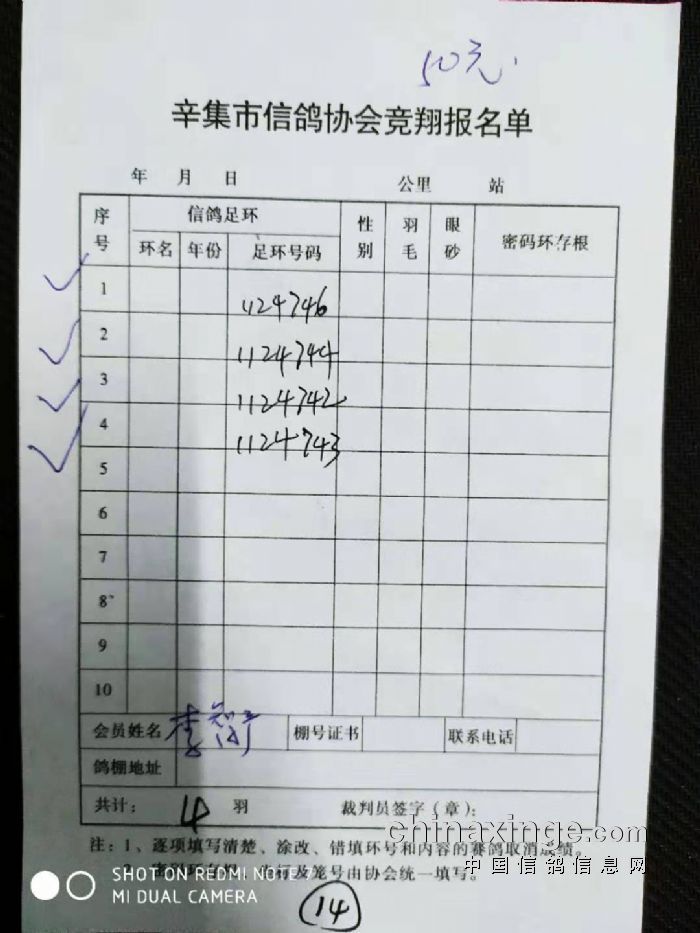 50元
辛集市信鸽协会竞翔报名单
年 月 日 公里 站
序号 信鸽足环 性别 羽毛 眼砂 密码环存根
环名 年份 足环号码
1 1124746
2 1124744
3 1124742
4 1124743
5
6
7
8
9
10
会员姓名 李 棚号证书 联系电话
鸽棚地址
共计: 4 羽 裁判员签字(章):
注:1、逐项填写清楚、涂改、错填环号和内容的赛鸽取消成绩。
chinaxinge.com
及笼号由协会统一填写。
中国信鸽信息网
SHOT ON REDMI NOTE 7
MI DUAL CAMERA
14